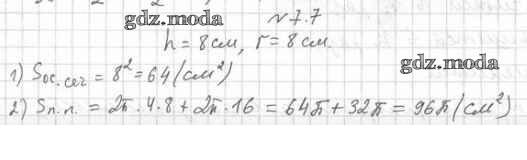 gdz.moda № 7.7
h = 8 см, r = 8 см.
gdz.moda
1) Sос.сеч = 8² = 64 (см²)
2) Sп.п. = 2π · 4 · 8 + 2π · 16 = 64π + 32π = 96π (см²)